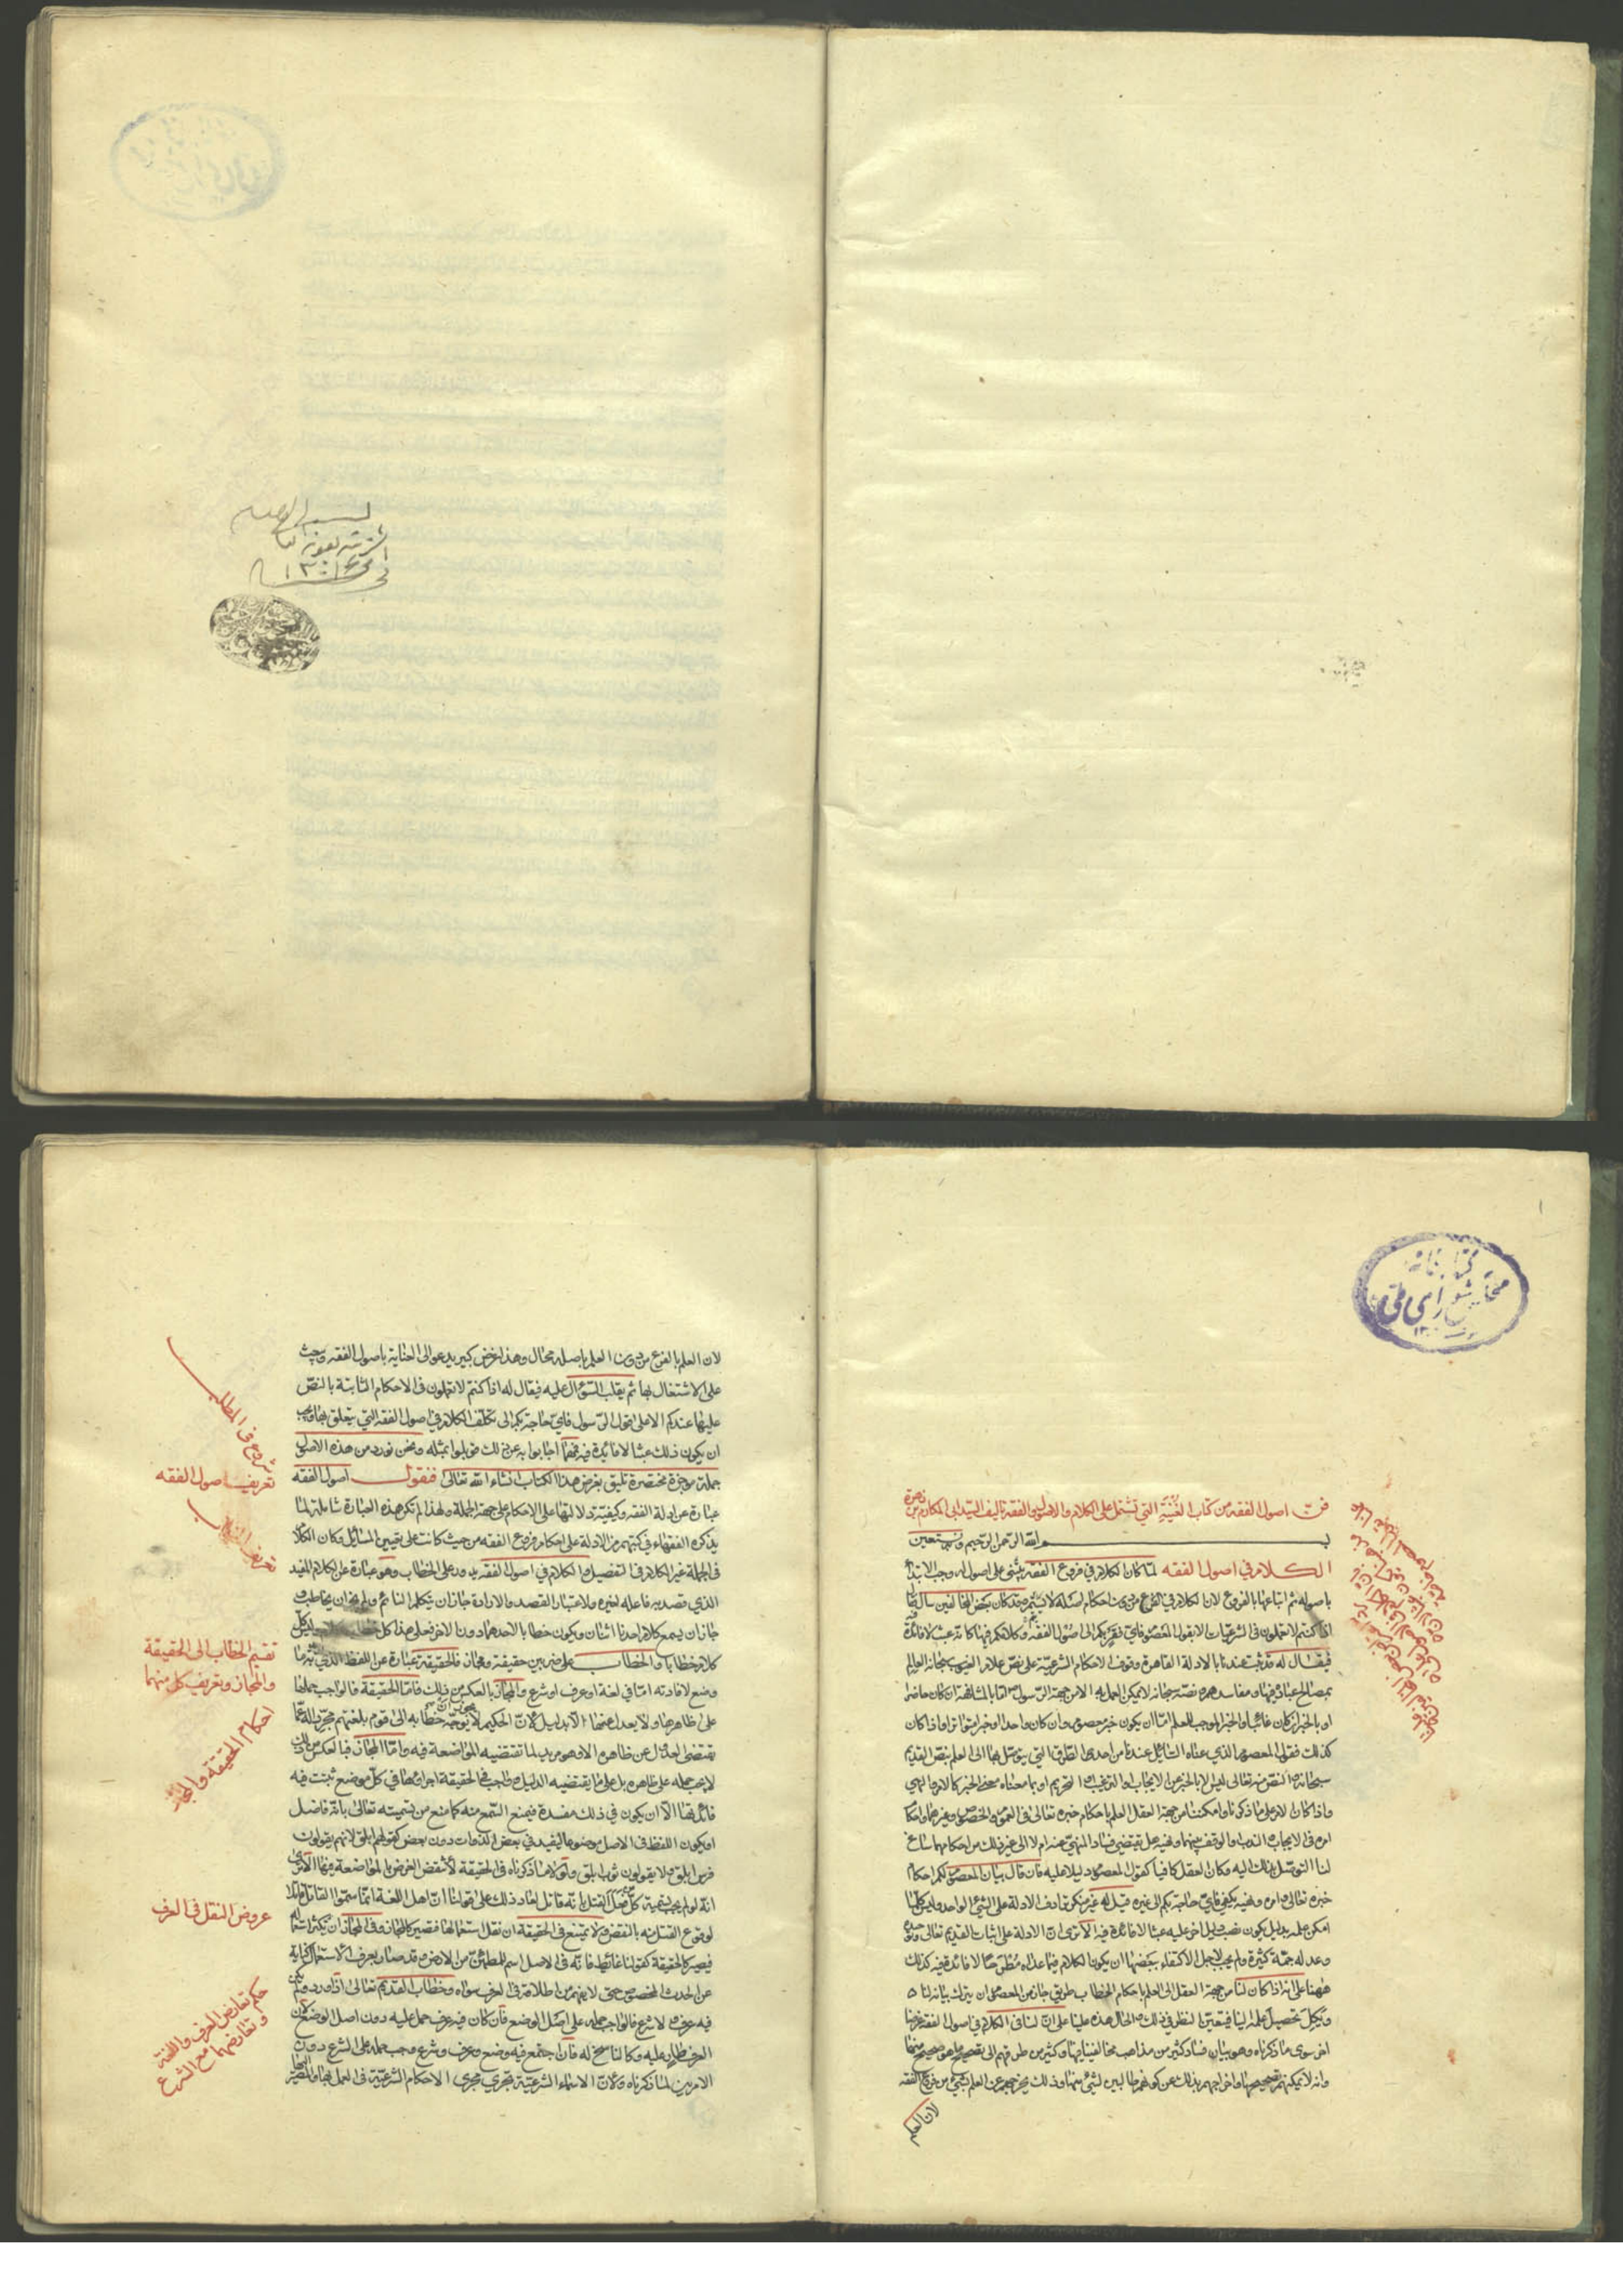 ١٣٠٤
كتابخانه
مجلس شورای ملی
فن اصول الفقه من كتاب الغنية التي تشتمل على الكلام والاصولين والفقه تاليف السيد ابى المكارم بن زهرة
بسم الله الرحمن الرحيم وبه نستعين
الكلام في اصول الفقه لما كان الكلام في فروع الفقه يبتنى على اصول له وجب الابتداء
باصوله ثم اتباعها بالفروع لان الكلام في الفرع من دون احكام اصله لا يثمر وقد كان بعض المخالفين سال فقال
اذا كنتم لا تعملون في الشرعيات الا بقول المعصوم فاي فقر بكم الى اصول الفقه وكلامكم فيها كانه عبث لا فائدة فيه
فيقال له قد ثبت عندنا بالادلة القاهرة وقوف الاحكام الشرعية على نص علام الغيوب سبحانه العالم
بمصالح عباده فيها ومفاسدهم ونصه سبحانه لا يمكن العمل به الا من جهة الرسول اما بالمشافهة ان كان حاضرا
او بالخبر ان كان غائبا والخبر الموجب للعلم اما ان يكون خبر معصوم وان كان واحدا او خبر متواتر واذا كان
كذلك فقول المعصوم الذي عناه السائل عندنا من احدى الطرق التي يتوصل بها الى العلم بنص القديم
سبحانه والنص منه تعالى ليس الا بالخبر عن الايجاب او الترغيب او التحريم او بما معناه معنى الخبر كالامر والنهي
واذا كان الامر على ما ذكرناه وامكننا من جهة العقل العلم باحكام خبره تعالى في العموم والخصوص وغيرهما واحكام
امره في الايجاب والندب والوقف بينهما ونهيه هل يقتضي فساد المنهي عنه ام لا الى غير ذلك من احكامهما ساغ
لنا التوصل بذلك اليه وكان العقل كافيا كقول المعصوم دليلا عليه فان قال بيان المعصوم لكم احكام
خبره تعالى وامره ونهيه يكفي فاي حاجة بكم الى غيره قيل له غير منكر ترادف الادلة على الشئ الواحد وليس كلما
امكن علمه بدليل يكون نصب دليل اخر عليه عبثا لا فائدة فيه الا ترى ان الادلة على اثبات القديم تعالى وتوحيده
وعدله جمة كثيرة ولم يجب لاجل الاكتفاء ببعضها ان يكون الكلام فيما عداه مطرحا لا فائدة فيه كذلك
ههنا على انه اذا كان لنا من جهة العقل الى العلم باحكام الخطاب طريق جاز من المعصوم ان يترك بيانه لنا
ويكل تحصيل علمه الينا فيتعين النظر في ذلك والحال هذه علينا على ان لنا في الكلام في اصول الفقه غرضا
اخر سوى ما ذكرناه وهو بيان فساد كثير من مذاهب مخالفينا فيها وكثير من طرقهم الى تصحيح ما هو صحيح منها
وانه لا يمكنهم تصحيحها واخراجهم بذلك عن كونهم عالمين بشئ منها وذلك يخرجهم عن العلم بشئ من فروع الفقه
لان العلم
لان العلم بالفرع من دون العلم باصله محال وهذا غرض كبير يدعو الى العناية باصول الفقه ويحث
على الاشتغال بها ثم يقلب السؤال عليه فيقال له اذا كنتم لا تعملون في الاحكام الثابتة بالنص
عليها عندكم الا على قول الرسول فاي حاجة بكم الى تكلف الكلام في اصول الفقه التي يتعلق بها ويجب
ان يكون ذلك عبثا لا فائدة فيه فمهما اجابوا به عن ذلك قوبلوا بمثله ونحن نورد من هذه الاصول
جملة موجزة مختصرة تليق بغرض هذا الكتاب انشاء الله تعالى فنقول اصول الفقه
عبارة عن ادلة الفقه وكيفية دلالتها على الاحكام على جهة الجملة ولهذا لم تكن هذه العبارة شاملة لما
يذكره الفقهاء في كتبهم من الادلة على احكام فروع الفقه من حيث كانت على تعيين المسائل وكان الكلام
في الجملة غير الكلام في التفصيل والكلام في اصول الفقه يدور على الخطاب وهو عبارة عن الكلام المفيد
الذي قصد به فاعله لغيره ولاعتبار القصد والارادة جاز ان يتكلم النائم ولم يجز ان يخاطب و
جاز ان يسمع كلام احدنا اثنان ويكون خطابا لاحدهما دون الاخر فعلى هذا كل خطاب كلام وليس كل
كلام خطابا والخطاب على ضربين حقيقة ومجاز فالحقيقة عبارة عن اللفظ الذي اريد به ما
وضع لافادته اما في لغة او عرف او شرع والمجاز بالعكس من ذلك فاما الحقيقة فالواجب حملها
على ظاهرها ولا يعدل عنها الا بدليل لان الحكيم لا يجوز ان يوجه خطابه الى قوم بلغتهم مجردا له عما
يقتضى العدول عن ظاهره الا وهو مريد لما تقتضيه المواضعة فيه واما المجاز فبالعكس من ذلك
لا يجب حمله على ظاهره بل على ما يقتضيه الدليل والواجب في الحقيقة اجراؤها في كل موضع ثبتت فيه
فائدتها الا ان يكون في ذلك مفسدة فيمنع السمع منه كما منع من تسميته تعالى بانه فاضل
او يكون اللفظ في الاصل موضوعا ليفيد في بعض الذوات دون بعض كقولهم ابلق لانهم يقولون
فرس ابلق ولا يقولون ثوب ابلق ولو لا ما ذكرناه في الحقيقة لانتقض الغرض بالمواضعة فيها الا ترى
انه لو لم يجب تسمية كل من فعل القتل بانه قاتل لعاد ذلك على قولنا ان اهل اللغة انما سموا القاتل قاتلا
لوقوع القتل منه بالنقض ولا يمتنع في الحقيقة ان نقل استعمالها فتصير كالمجاز وفي المجاز ان يكثر استعماله
فيصير كالحقيقة كقولنا غائط فانه في الاصل اسم للمطمئن من الارض وقد صار بعرف الاستعمال كناية
عن الحدث المخصوص حتى لا يفهم من اطلاقه في العرف سواه وخطاب القديم تعالى اذا ورد ولم يكن
فيه عرف ولا شرع فالواجب حمله على اصل الوضع فان كان فيه عرف حمل عليه دون اصل الوضع لكون
العرف طاريا عليه وكالناسخ له فان اجتمع فيه وضع وعرف وشرع وجب حمله على الشرع دون
الامرين لما ذكرناه ولان الاسماء الشرعية تجري مجرى الاحكام الشرعية في العمل بها والمصير اليها
شروع في المطالب
تعريف اصول الفقه
تقسيم الخطاب الى الحقيقة
والمجاز وتعريف كل منهما
احكام الحقيقة والمجاز
عروض النقل في العرف
حكم تعارض العرف واللغة
وتعارضهما مع الشرع